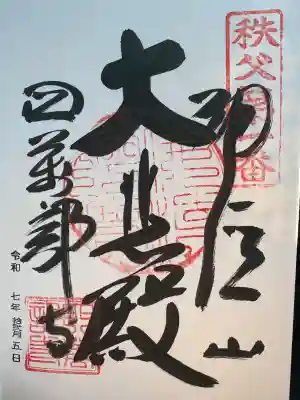 秩父第一番
誦経山
大悲殿
四萬部寺
令和 七年 月五日